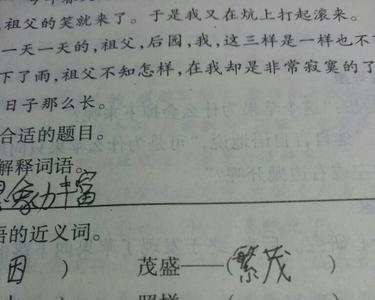 ，祖父的笑就来了。于是我又在炕上打起滚来。
一天一天的，祖父，后园，我，这三样是一样也不
下了雨，祖父不知怎样，在我却是非常寂寞的了
日子那么长。
合适的题目。
解释词语。
象力丰富
语的近义词。
因 ） 茂盛——（繁茂 ）